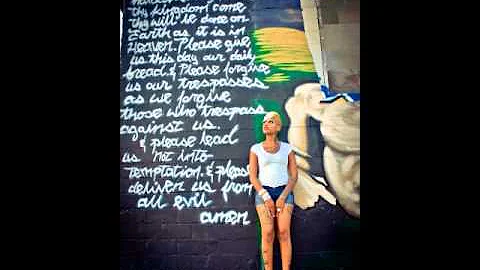 thy kingdom come
thy will be done on
Earth as it is in
Heaven. Please give
us this day our daily
bread. & Please forgive
us our trespasses
as we forgive
those who trespass
against us.
& please lead
us not into
temptation. & please
deliver us from
all evil
amen